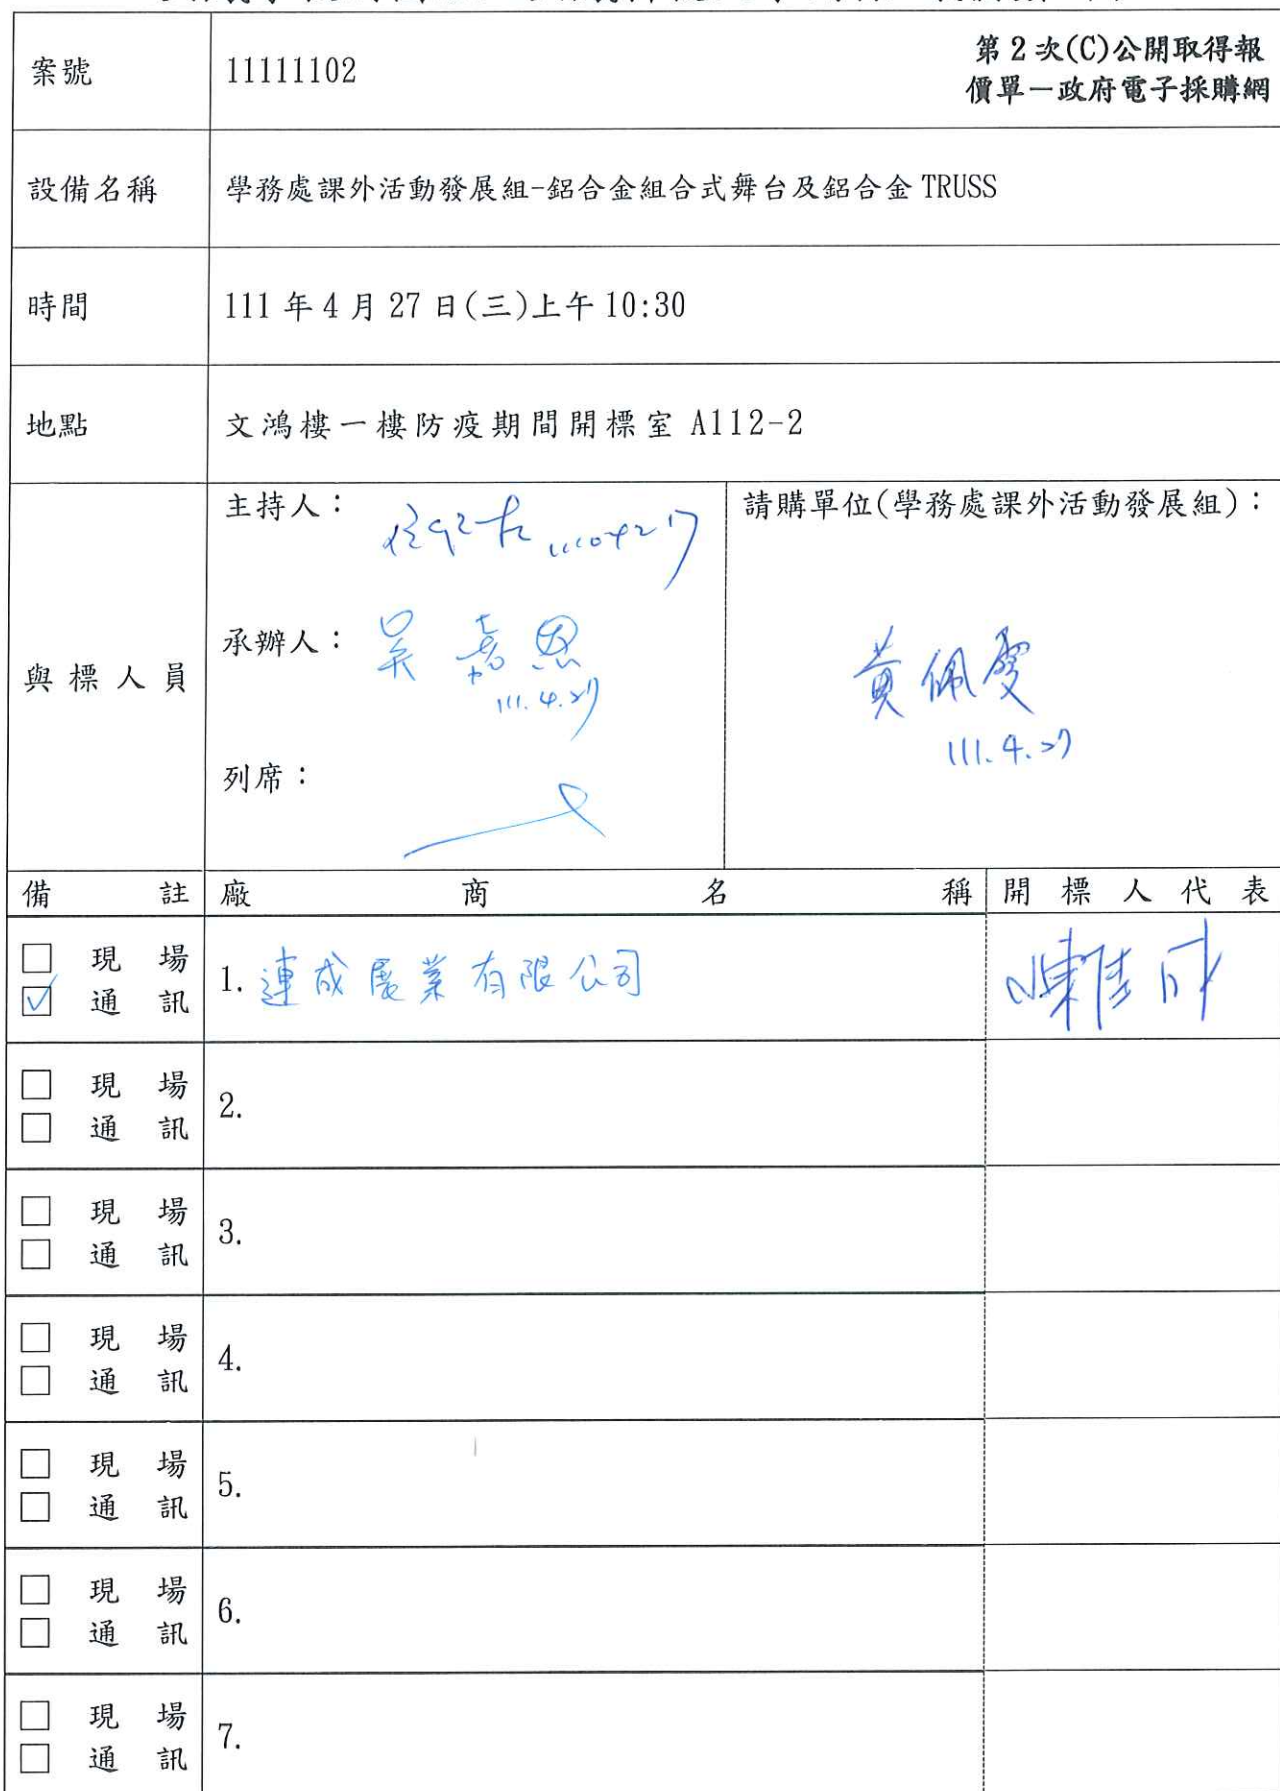 案號 11111102 第2次(C)公開取得報
價單－政府電子採購網
設備名稱 學務處課外活動發展組-鋁合金組合式舞台及鋁合金TRUSS
時間 111年4月27日(三)上午10:30
地點 文鴻樓一樓防疫期間開標室 A112-2
與標人員
主持人：
1110427
承辦人：吳嘉恩
111.4.27
列席：
請購單位(學務處課外活動發展組)：
黃佩雯
111.4.27
備註 廠商名稱 開標人代表
□ 現場
☑ 通訊
1. 連成展業有限公司
□ 現場
□ 通訊
2.
□ 現場
□ 通訊
3.
□ 現場
□ 通訊
4.
□ 現場
□ 通訊
5.
□ 現場
□ 通訊
6.
□ 現場
□ 通訊
7.